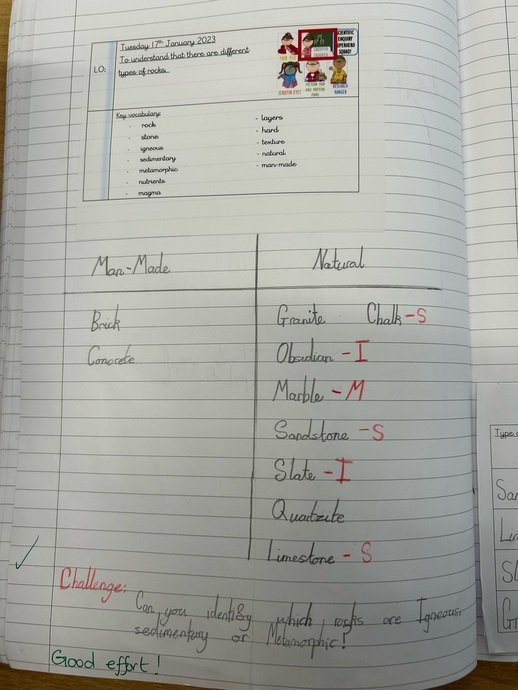 Tuesday 17th January 2023
LO: To understand that there are different
types of rocks.
SCIENTIFIC
ENQUIRY
SUPERHERO
SQUAD!
RESEARCH
RANGER
Key vocabulary:
- rock
- stone
- igneous
- sedimentary
- metamorphic
- nutrients
- magma
- layers
- hard
- texture
- natural
- man-made
Man-Made
Natural
Brick
Concrete
Granite Chalk - S
Obsidian - I
Marble - M
Sandstone - S
Slate - I
Quartzite
Limestone - S
Challenge:
Can you identify which rocks are Igneous,
sedimentary or Metamorphic?
Good effort!
Type